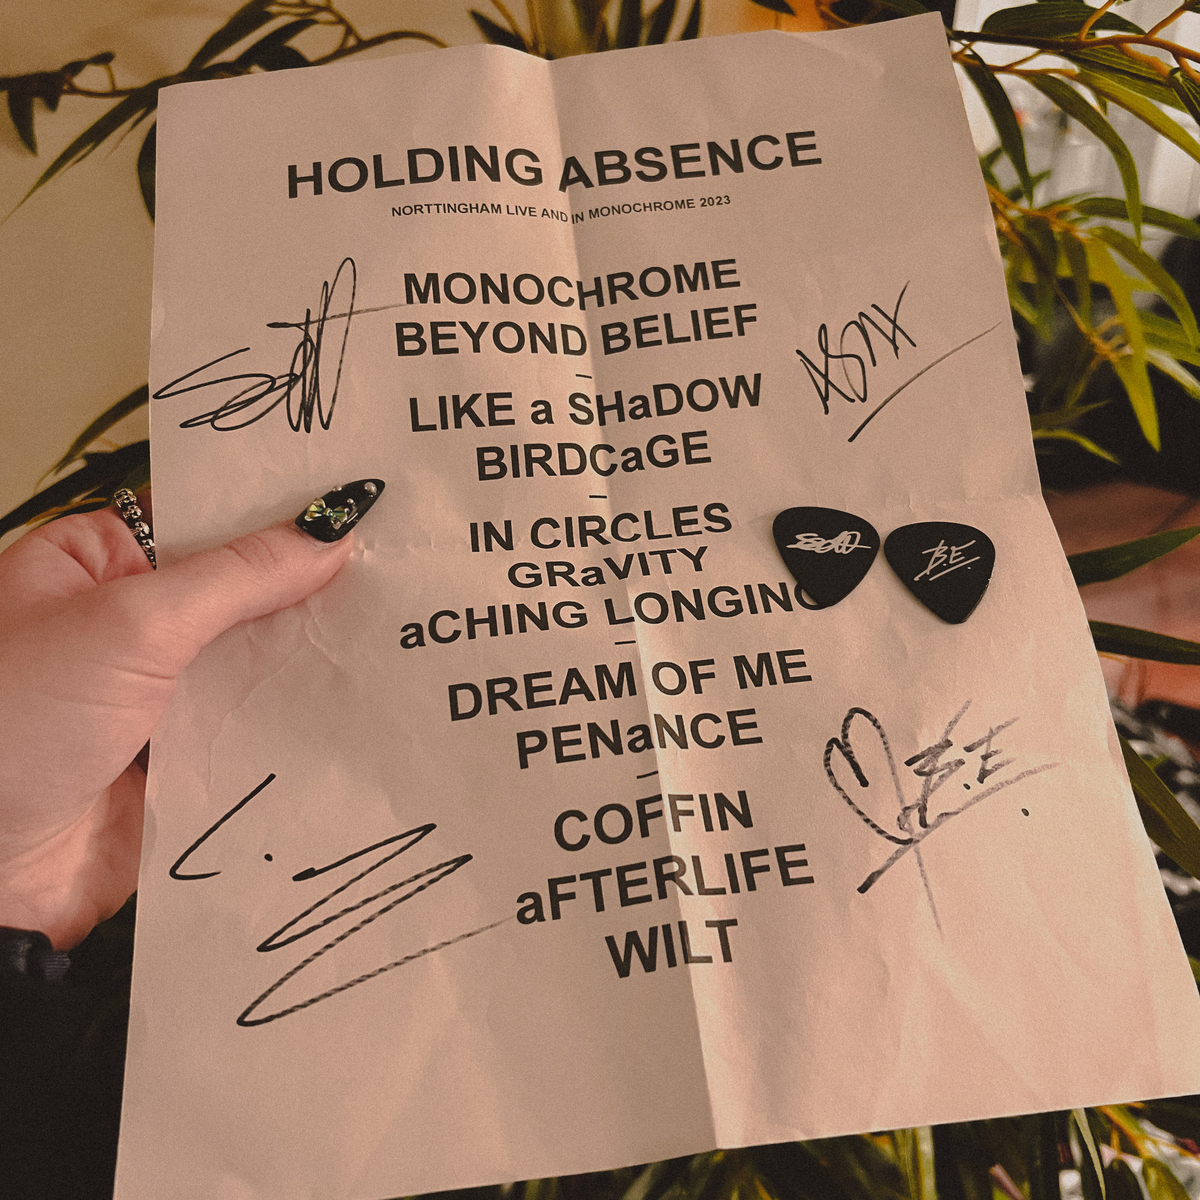 HOLDING ABSENCE
NORTTINGHAM LIVE AND IN MONOCHROME 2023
MONOCHROME
BEYOND BELIEF
–
LIKE a SHaDOW
BIRDCaGE
–
IN CIRCLES
GRaVITY
aCHING LONGING
–
DREAM OF ME
PENaNCE
–
COFFIN
aFTERLIFE
WILT
Scott
B.E.
B.E.